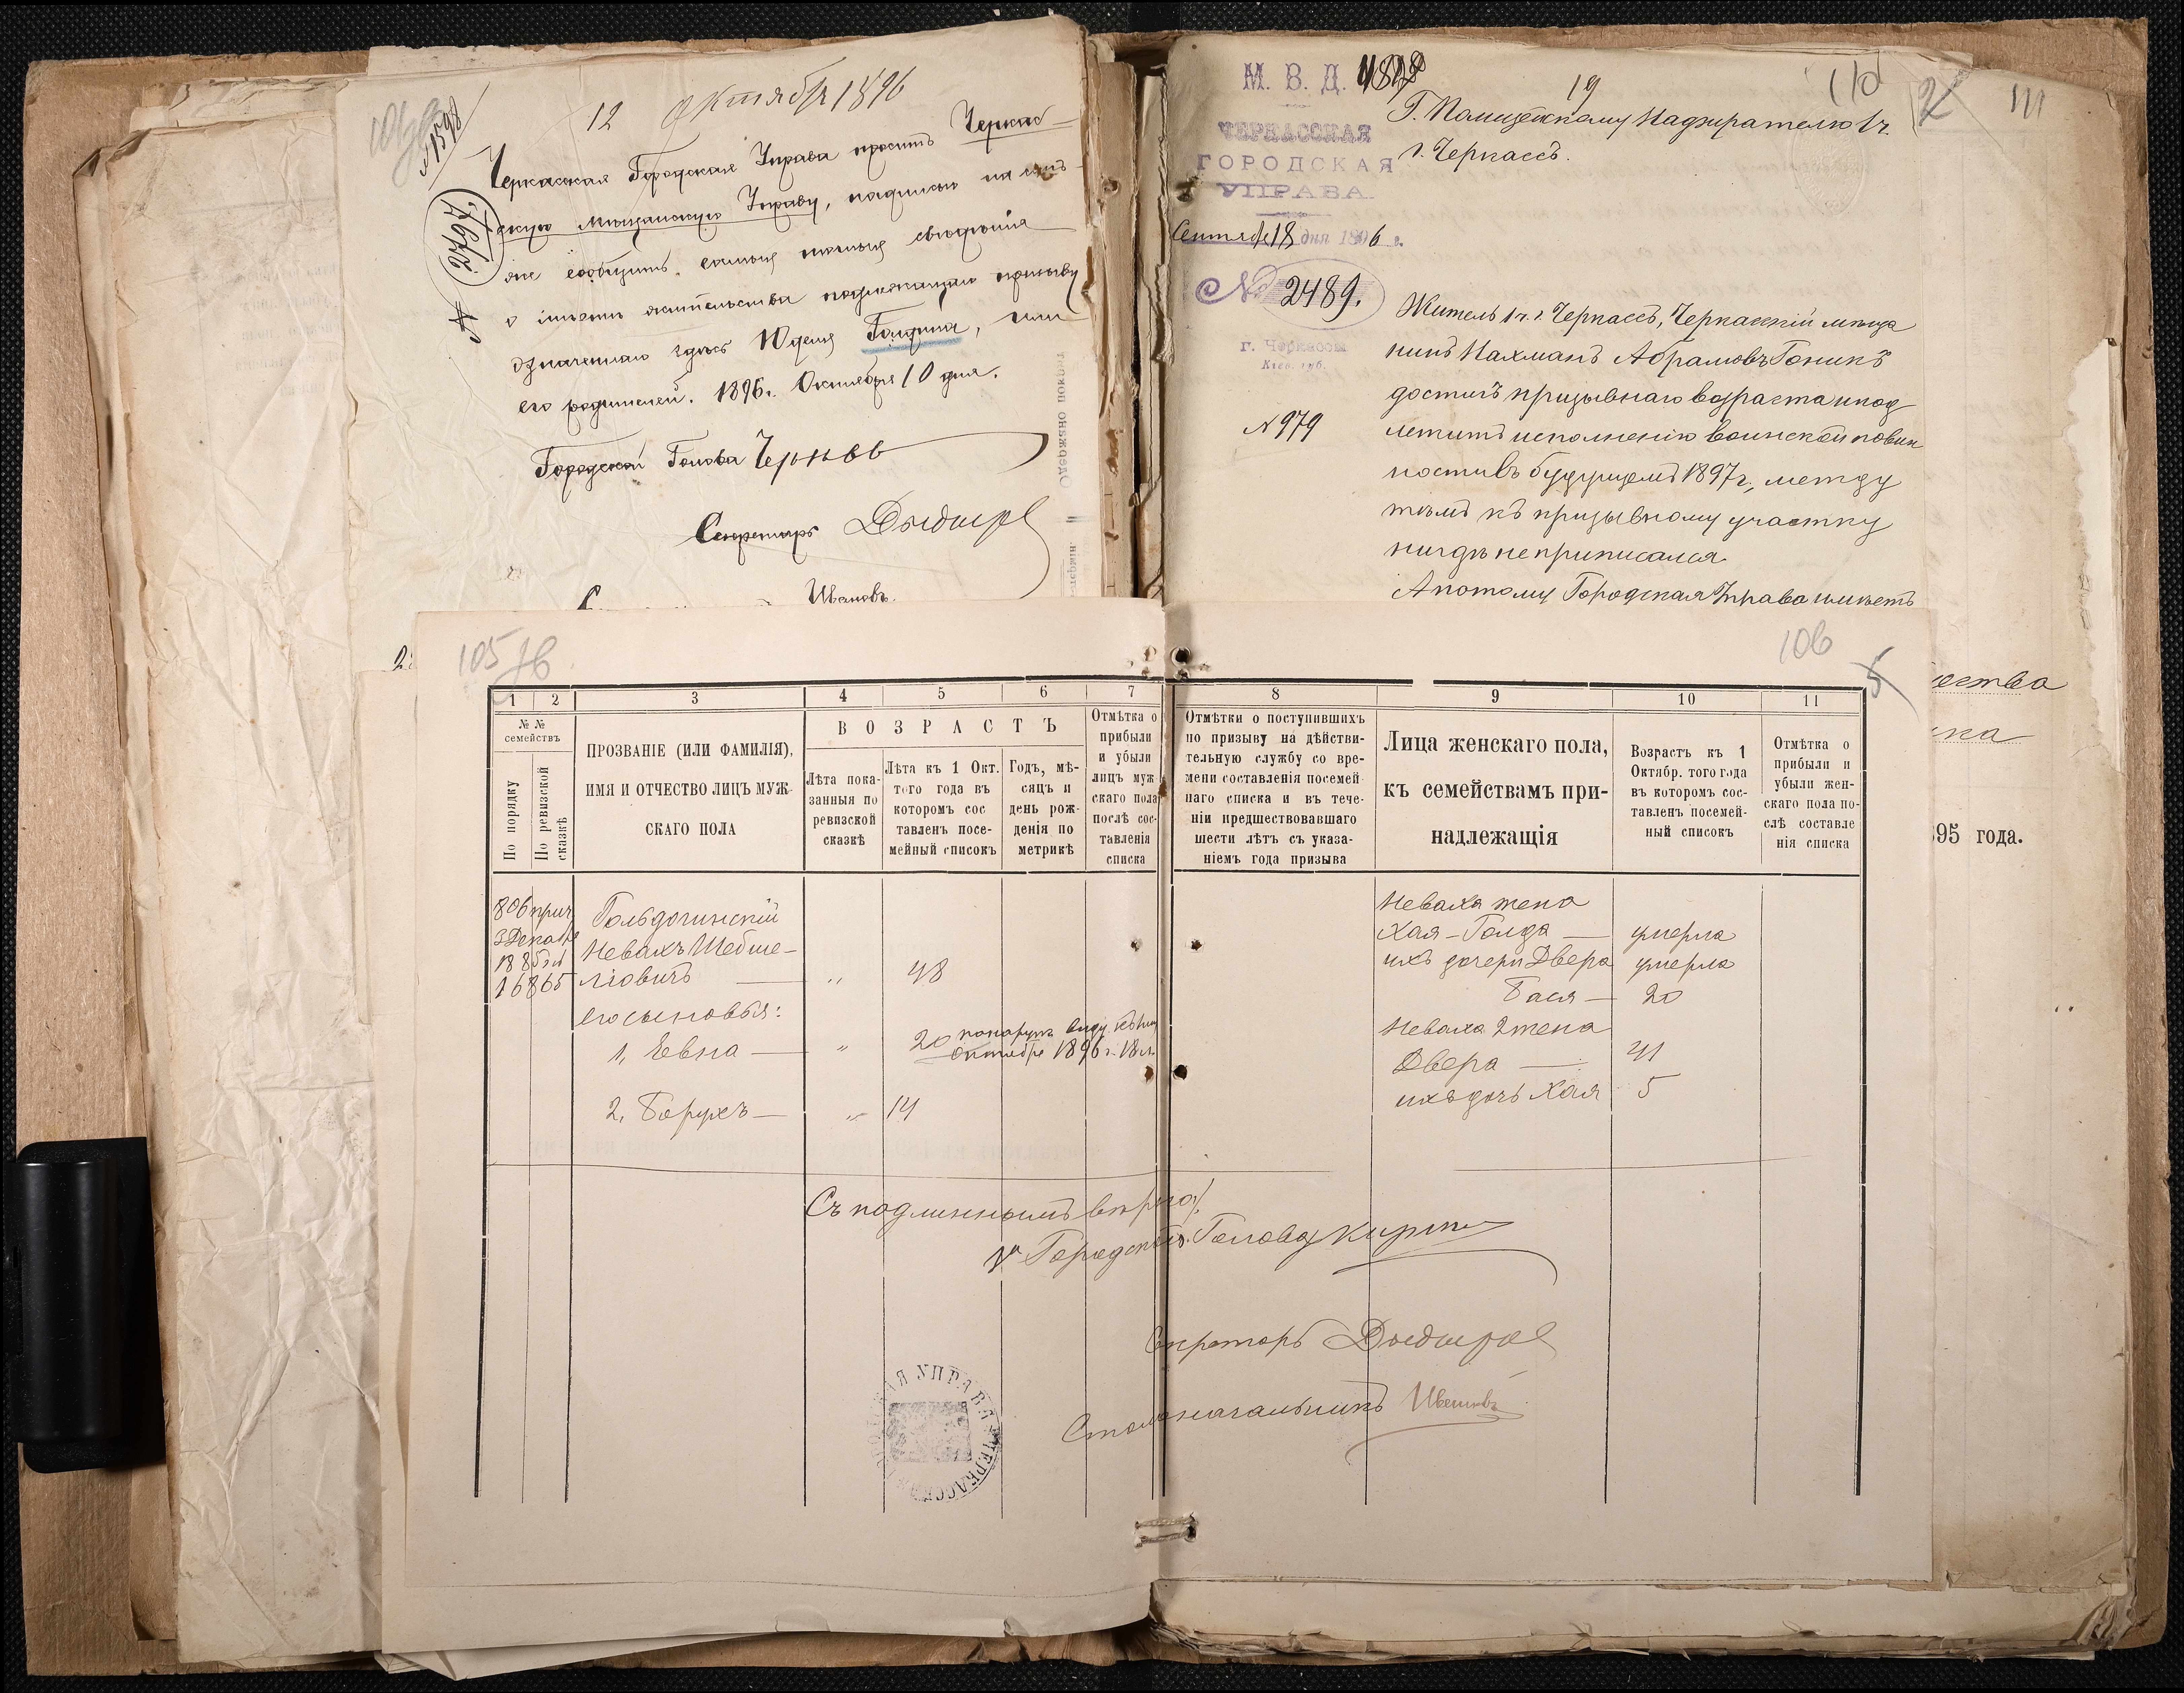 12 Октября 1896
Черкасская Городская Управа проситъ Черкас-
скую Мѣщанскую Управу, надписью на семъ-
же сообщить самыя точныя свѣдѣнія
о мѣстѣ жительства подлежащаго призыву
означеннаго здѣсь Юделя Голдина, или
его родителей. 1896 г. Октября 10 дня.
Городской Голова Черновъ
Секретарь
Ивановъ
М. В. Д.
ЧЕРКАССКАЯ
ГОРОДСКАЯ
УПРАВА.
Сентября 18 дня 1896 г.
№ 2489.
г. Черкассы
Кіев. губ.
N 979
19
110
Г. Полицейскому Надзирателю 1 ч.
г. Черкассъ.
Житель 1 ч. г. Черкассъ, Черкасскій мѣща
нинъ Нахманъ Абрамовъ Гоникъ
достигъ призывнаго возраста и под
лежитъ исполненію воинской повин
ности въ будущемъ 1897 г., между
тѣмъ къ призывному участку
нигдѣ не приписался
А потому Городская Управа имѣетъ
2
111
ества
895 года.
105
106
5
1 2 3 4 5 6 7 8 9 10 11
№ №
семействъ
По порядку
По ревизской
сказкѣ
ПРОЗВАНІЕ (ИЛИ ФАМИЛІЯ),
ИМЯ И ОТЧЕСТВО ЛИЦЪ МУЖ-
СКАГО ПОЛА
ВОЗРАСТЪ
Лѣта пока-
занныя по
ревизской
сказкѣ
Лѣта къ 1 Окт.
того года въ
котором сос
тавленъ посе-
мейный списокъ
Годъ, мѣ-
сяцъ и
день рож-
денія по
метрикѣ
Отмѣтка о
прибыли
и убыли
лицъ муж
скаго пола
послѣ сос-
тавленія
списка
Отмѣтки о поступившихъ
по призыву на дѣйстви-
тельную службу со вре-
мени составленія посемей
наго списка и въ тече-
ніи предшествовавшаго
шести лѣтъ съ указа-
ніемъ года призыва
Лица женскаго пола,
къ семействамъ при-
надлежащія
Возрастъ къ 1
Октябр. того года
въ котором сос-
тавленъ посемей-
ный списокъ
Отмѣтка о
прибыли и
убыли жен-
скаго пола по-
слѣ составле
нія списка
806 прич.
3 Декабря
1885
16865
Гольдогинскій
Невахъ Шебше-
ліовичъ — „ 48
его сыновья:
1, Евна — „ 20
Октября 1896 г. 18 л.
2, Борухъ — „ 14
Неваха жена
Хая-Голда — умерла
ихъ дочери Двера умерла
Бася — 20
Неваха 2 жена
Двера — 41
ихъ дочь Хая 5
Съ подлиннымъ вѣрно:
Городской Голова
Секретарь
Столоначальникъ Ивановъ